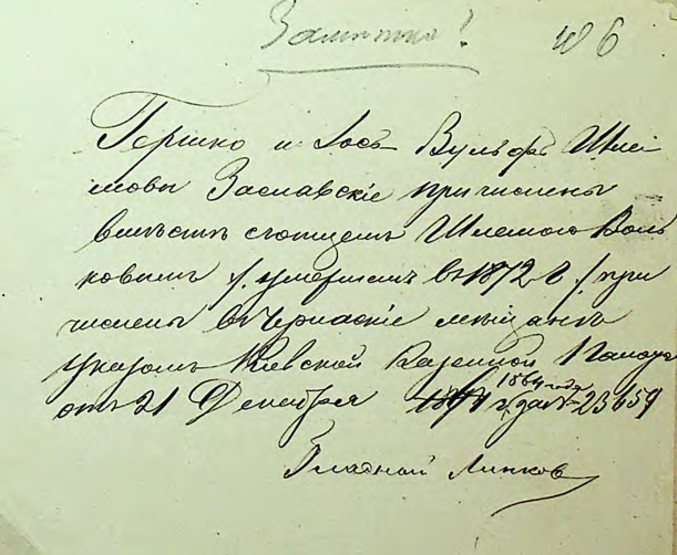 Заметка! № 6
Гершко и Іось Вульфъ Шлей
мовы Заславскіе причислены
вмѣстѣ съ отцемъ Шлемою Воль
ковымъ /. умершимъ въ 1872 г ./ при
числены въ Черкаскіе мѣщане
указомъ Кіевской Казенной Палаты
отъ 21 Декабря 1864 года за № 23659
Гласной